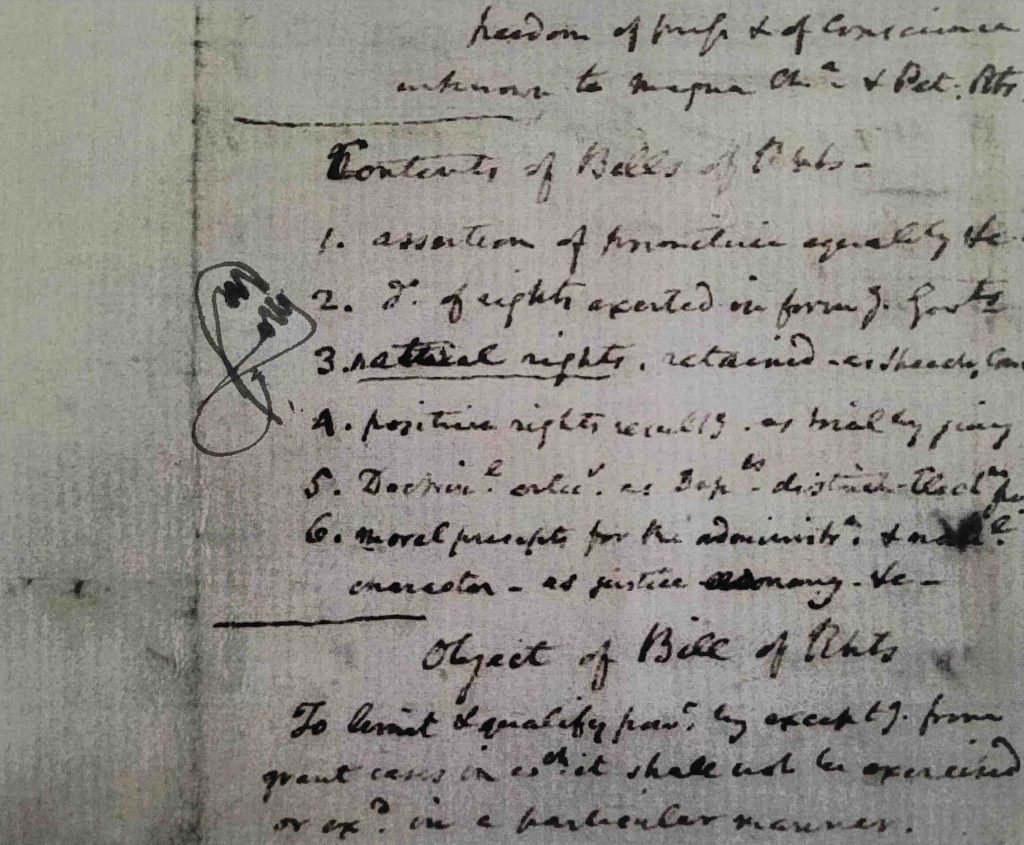 freedom of press & of Conscience
unknown to Magna Cha & Pet. Rts
Contents of Bills of Rhts-
1. assertion of primitive equality &c
2. do. of rights exerted in formg. Govts
3. natural rights. retained - as Speech, Con
4. positive rights resultg. as trial by jury
5. Doctrinl. artics. as Depts. distinct Elect
6. moral precepts for the administrn. & natl.
character - as justice economy - &c -
Object of Bill of Rhts
To limit & qualify powr. by exceptg. from
grant cases in wch. it shall not be exercised
or exd. in a particular manner.